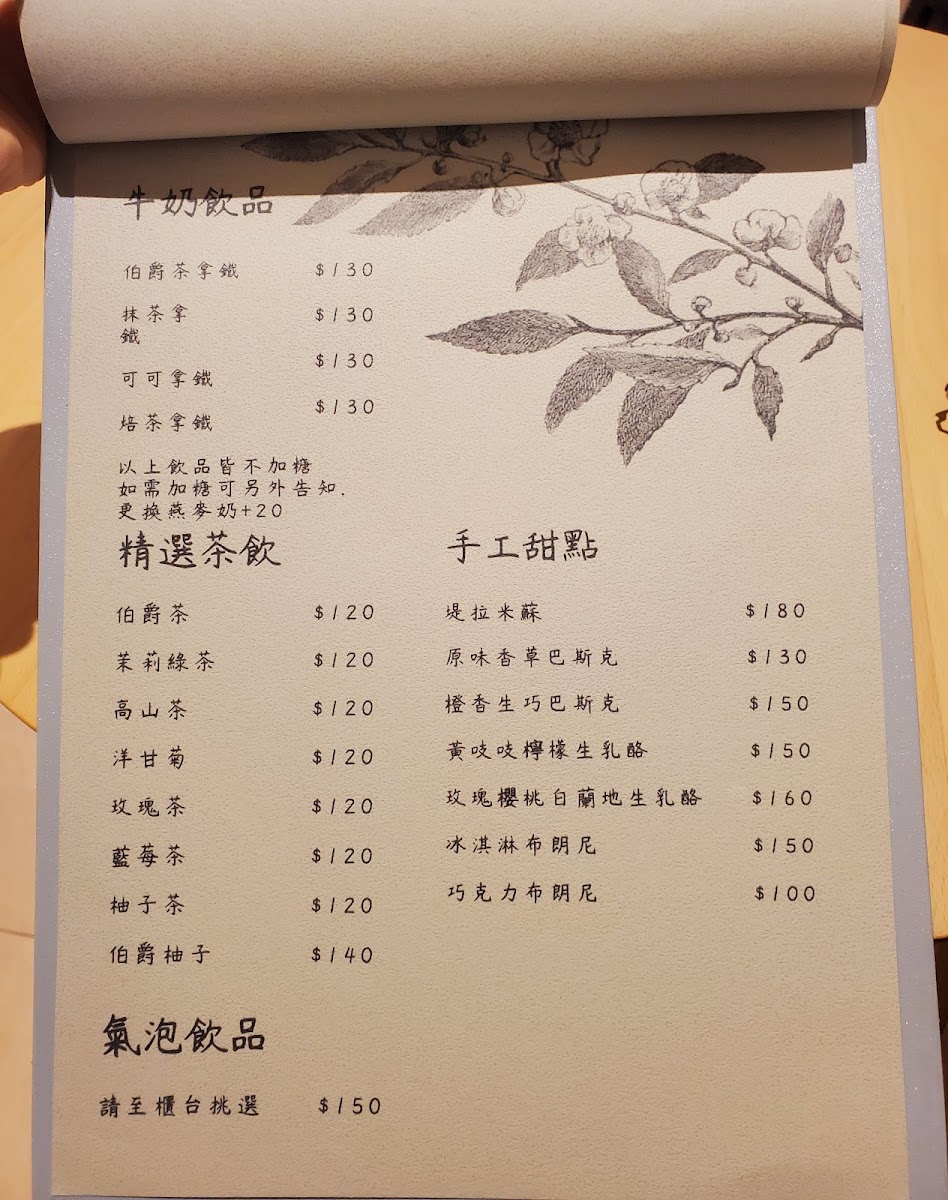 牛奶飲品
伯爵茶拿鐵 $130
抹茶拿
鐵 $130
可可拿鐵 $130
焙茶拿鐵 $130
以上飲品皆不加糖
如需加糖可另外告知.
更換燕麥奶+20
精選茶飲
伯爵茶 $120
茉莉綠茶 $120
高山茶 $120
洋甘菊 $120
玫瑰茶 $120
藍莓茶 $120
柚子茶 $120
伯爵柚子 $140
氣泡飲品
請至櫃台挑選 $150
手工甜點
堤拉米蘇 $180
原味香草巴斯克 $130
橙香生巧巴斯克 $150
黃吱吱檸檬生乳酪 $150
玫瑰櫻桃白蘭地生乳酪 $160
冰淇淋布朗尼 $150
巧克力布朗尼 $100